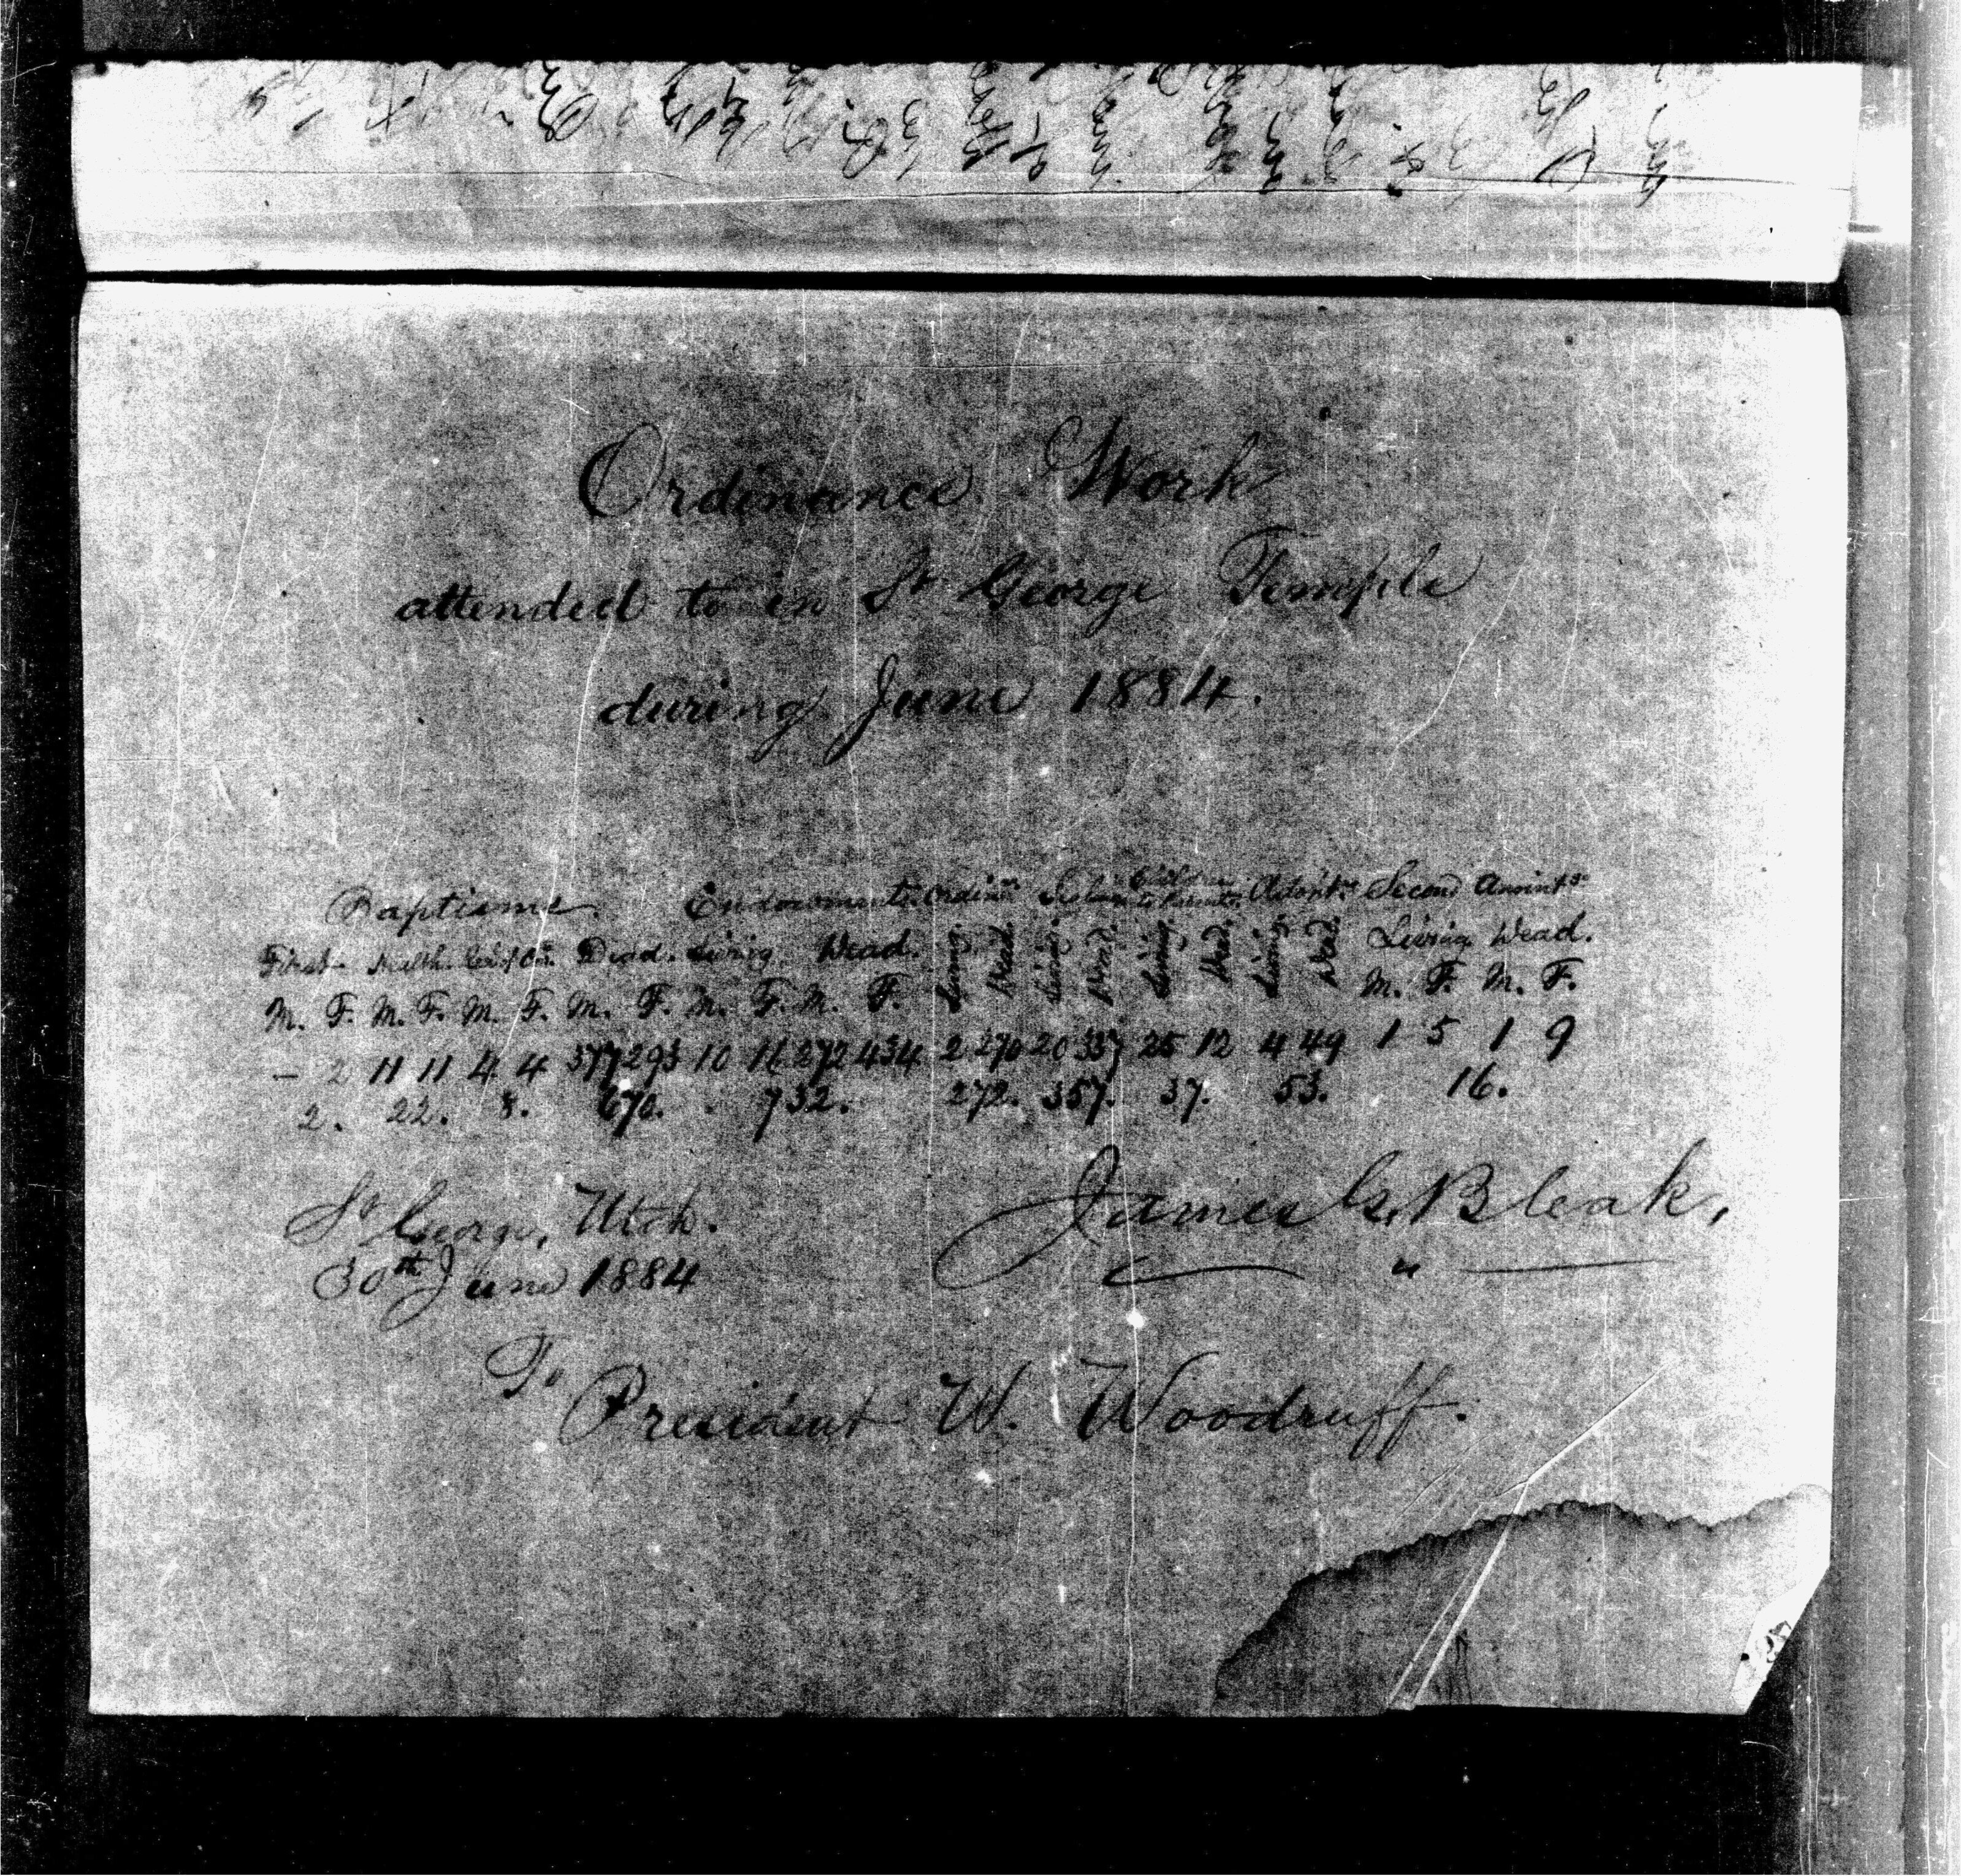 Ordinance Work
attended to in St George Temple
during June 1884.
Baptisms. Endowments. Ordinns Sealings Children to Parents. Adoptns Second Anointgs
First Health. Dead. Living Dead. Living. Dead. Living. Dead. Living. Dead. Living. Dead. Living Dead.
M. F. M. F. M. F. M. F. M. F. M. F. M. F. M. F.
— 2 11 11 4 4 377 293 10 16 272 434 2 270 20 337 25 12 4 49 1 5 1 9
2. 22. 8. 670. 732. 272. 357. 37. 53. 16.
St George, Utah.
30th June 1884
James G. Bleak,
To
President W. Woodruff.